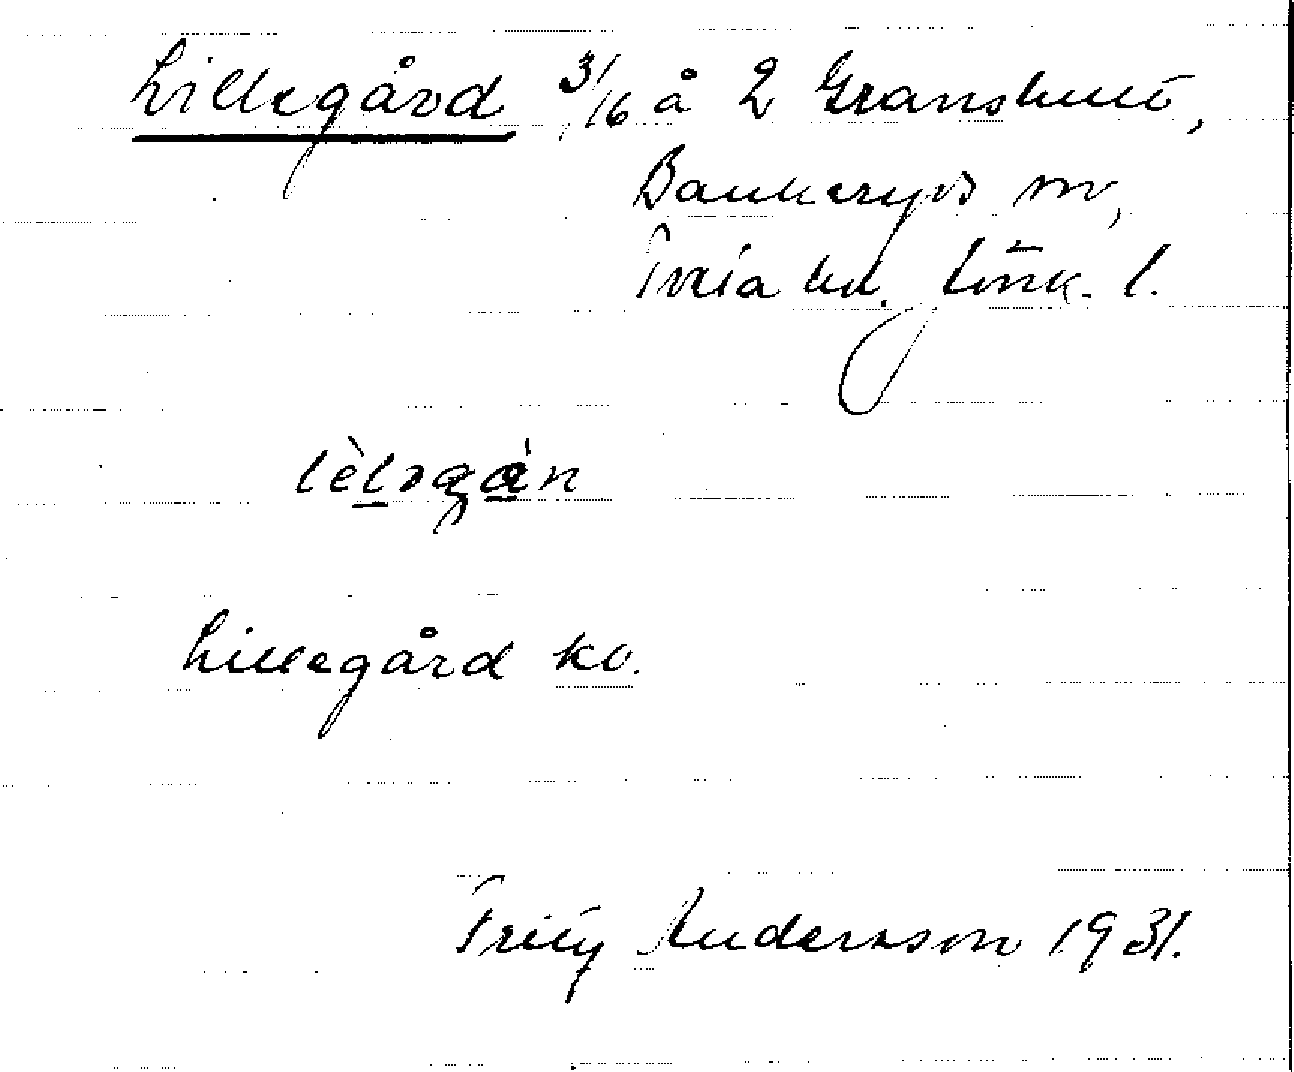 Lillegård 3/16 å 2 Granshult,
Bankeryds sn,
Tveta hd. Jönk. l.
Lillegård ko.
Fritz Andersson 1931.